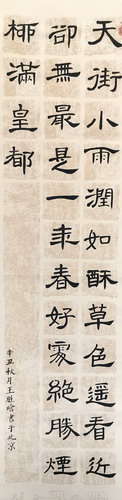 天街小雨潤如酥草色遥看近
卻無最是一年春好處絶勝煙
柳滿皇都
辛丑秋月王胜晗書于北京